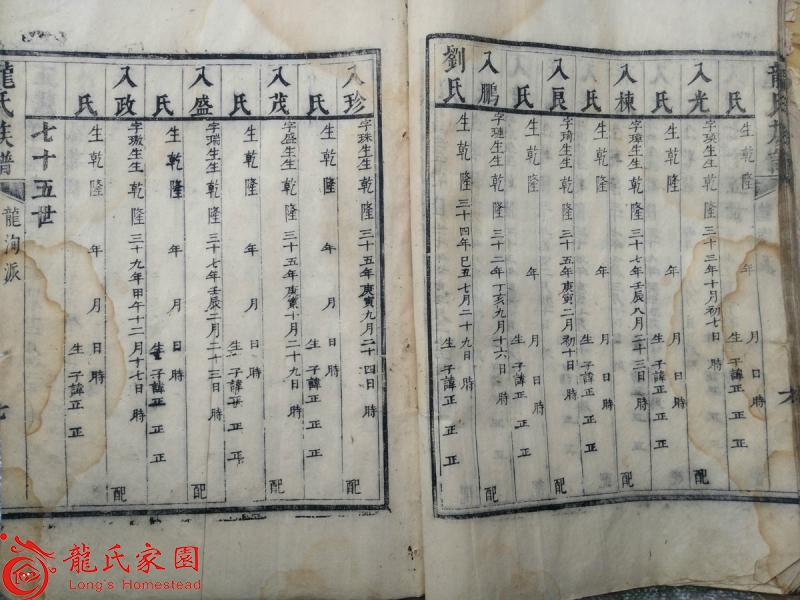 龍氏族譜
氏 生乾隆 年 月 日 時 生 子諱正 正 正
入光 字瑛生生乾隆三十三年十月初七日 時 配
氏 生乾隆 年 月 日 時 生 子諱正 正 正
入棟 字璋生生乾隆三十七年壬辰八月二十三日 時 配
氏 生乾隆 年 月 日 時 生 子諱正 正 正
入良 字琦生生乾隆三十五年庚寅二月初十日 時 配
氏 生乾隆 年 月 日 時 生 子諱正 正 正
入鵬 字璉生生乾隆三十二年丁亥九月十六日 時 配
劉氏 生乾隆三十四年己丑七月二十九日 時 生 子諱正 正 正
入珍 字珠生生乾隆三十五年庚寅九月二十四日 時 配
氏 生乾隆 年 月 日 時 生 子諱正 正 正
入茂 字盛生生乾隆三十五年庚寅十月二十九日 時 配
氏 生乾隆 年 月 日 時 生 子諱正 正 正
入盛 字瑞生生乾隆三十七年壬辰二月二十三日 時 配
氏 生乾隆 年 月 日 時 生 子諱正 正 正
入政 字璈生生乾隆三十九年甲午十二月十七日 時 配
氏 生乾隆 年 月 日 時 生 子諱正 正 正
七十五世
龍氏族譜 龍洵派 七
龍氏家園
Long's Homestead